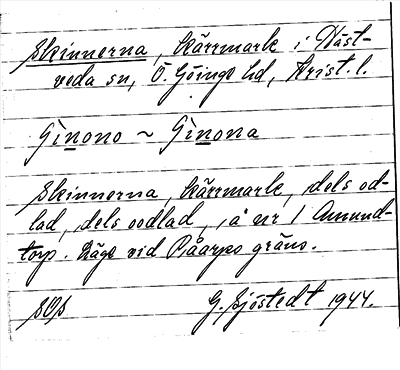 Skinnerna, kärrmark i Näst-
veda sn, Ö. Göinge hd, Krist. l.
Gìnono ~ Gìnona
Skinnerna, kärrmark, dels od-
lad, dels oodlad, å nr 1 Amund-
torp. Läge vid Råarps gräns.
SOS
G. Sjöstedt 1944.